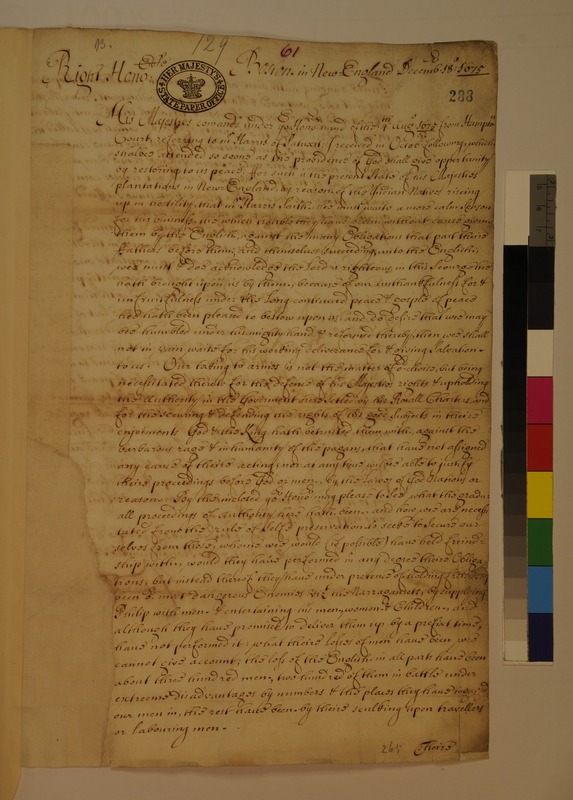 93. 129 61
Right Hono:ble Boston in New England Decemb 18: 1675
HER MAJESTY'S STATE PAPER OFFICE
288
His Majesties comands under yo Hono hand of the 4th Augs 1675 from Hampton
Court, referring to mr Harris of Patuxet, I received in Octob following, which
shalbee attended so soone as the providence of God shall give opportunity
by restoring to us peace, for such is the present State of his Majesties
plantations in New England, by reason of the Indian Natives riseing
up in hostility, that mr Harris saith he must waite a more calm season
for his business, the which trouble they have been without cause given
them by the English, against the many Obligations that past theire
ffathers before them, and themselves succeeding, unto the English,
wee must & doe acknowledge the Lord is righteous, in this Scourge hee
hath brought upon us by them, because of our unthankfulness for &
unfruitfulness under the Long continued peace & gosple of peace
hee hath been pleased to bestow upon us, and do desire that wee may
bee humbled under his mighty hand, & reformed thereby, then wee shall
not in vain waite for his working deliverance for & giving Salvation
to us. Our taking to armes is not the matter of o choise, but being
necessitated thereto for the defence of his Majesties rights & upholding
the Authority in the Government here setled by his Royall Charters and
for the secureing & defending the rights of his good Subjects in theire
enjoyments God & the King hath betrusted them with, against the
barbarous rage & inhumanity of the pagans, that have not assigned
any cause of theire acting, nor at any time wilbe able to justify
theire proceedings before God or men, by the Lawes of God Nations or
reason. By the inclosed yo Hono may please to See what the gradu-
all proceedings of Authority here hath been, and how wee are necessi-
tated from the rule of selfe preservation to seeke to secure our
selves from those, whome wee would (if possible) have held friend-
ship with, would they have performed in any degree theire Obliga-
tions, but instead thereof they have under pretence of holding friendship
been o most dangerous Enemies vizt the Narragansets, by supplying
Philip with men & entertaining his men, women & Children, and
although they have promised to deliver them up by a prefixt time,
have not performed it; what theire losses of men have been wee
cannot give account; the loss of the English in all parts have been
about three hundred men, two hundred of them in battle under
extreeme disadvantages by numbers & the places they have ingaged
our men in, the rest have been by theire sculking upon travellers
or labouring men.
265 Theire